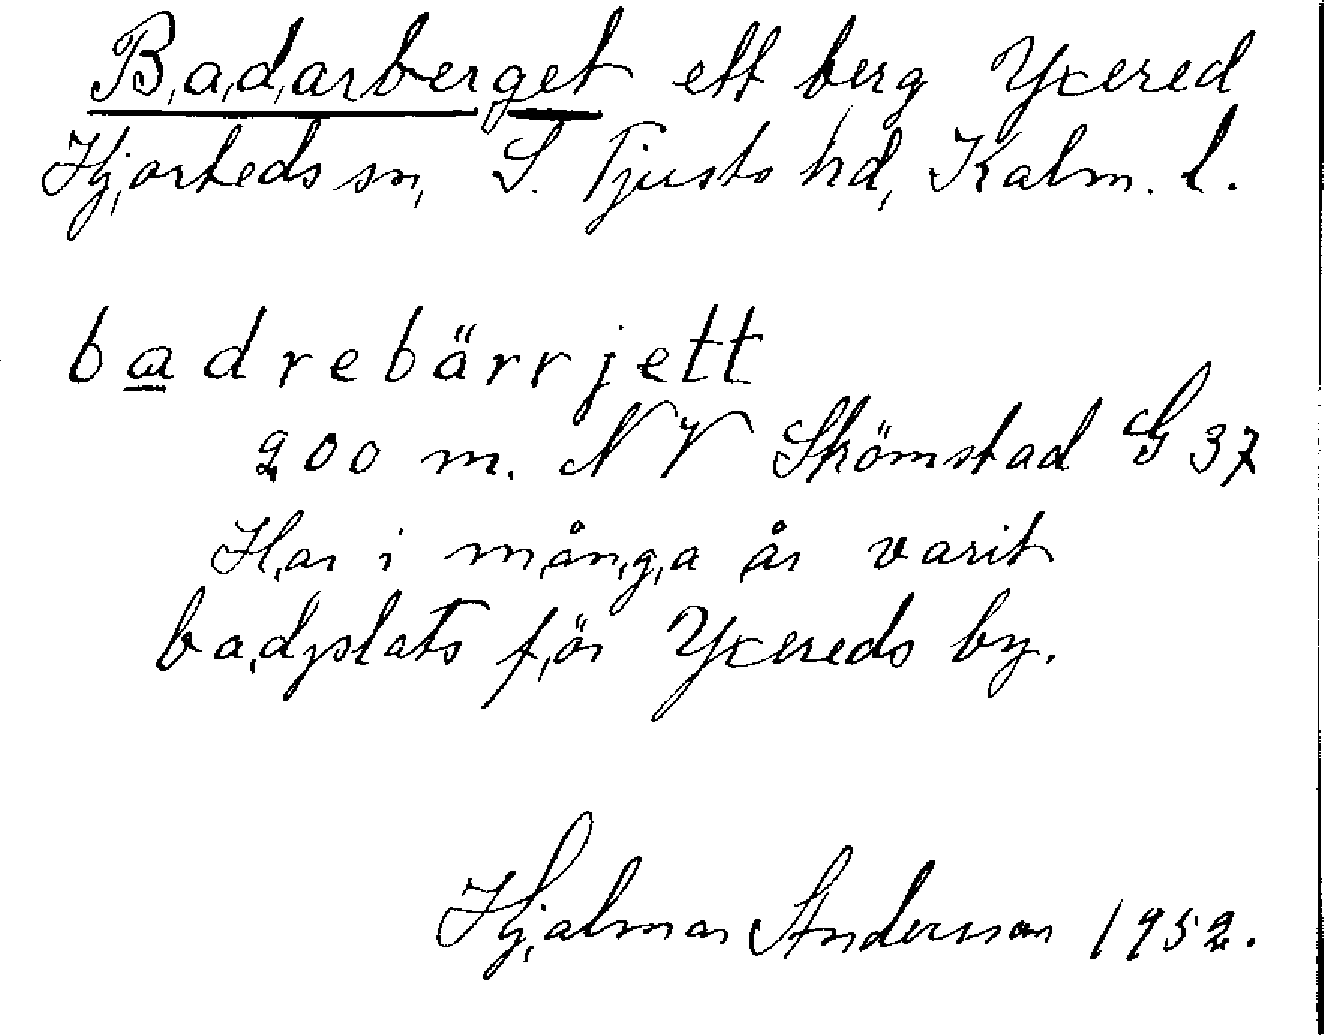 Badarberget ett berg Yxered
Hjorteds sn, S. Tjusts hd, Kalm. l.
badrebärrjett
200 m. NV Skömstad G 37
Har i många år varit
badplats för Yxereds by.
Hjalmar Andersson 1952.